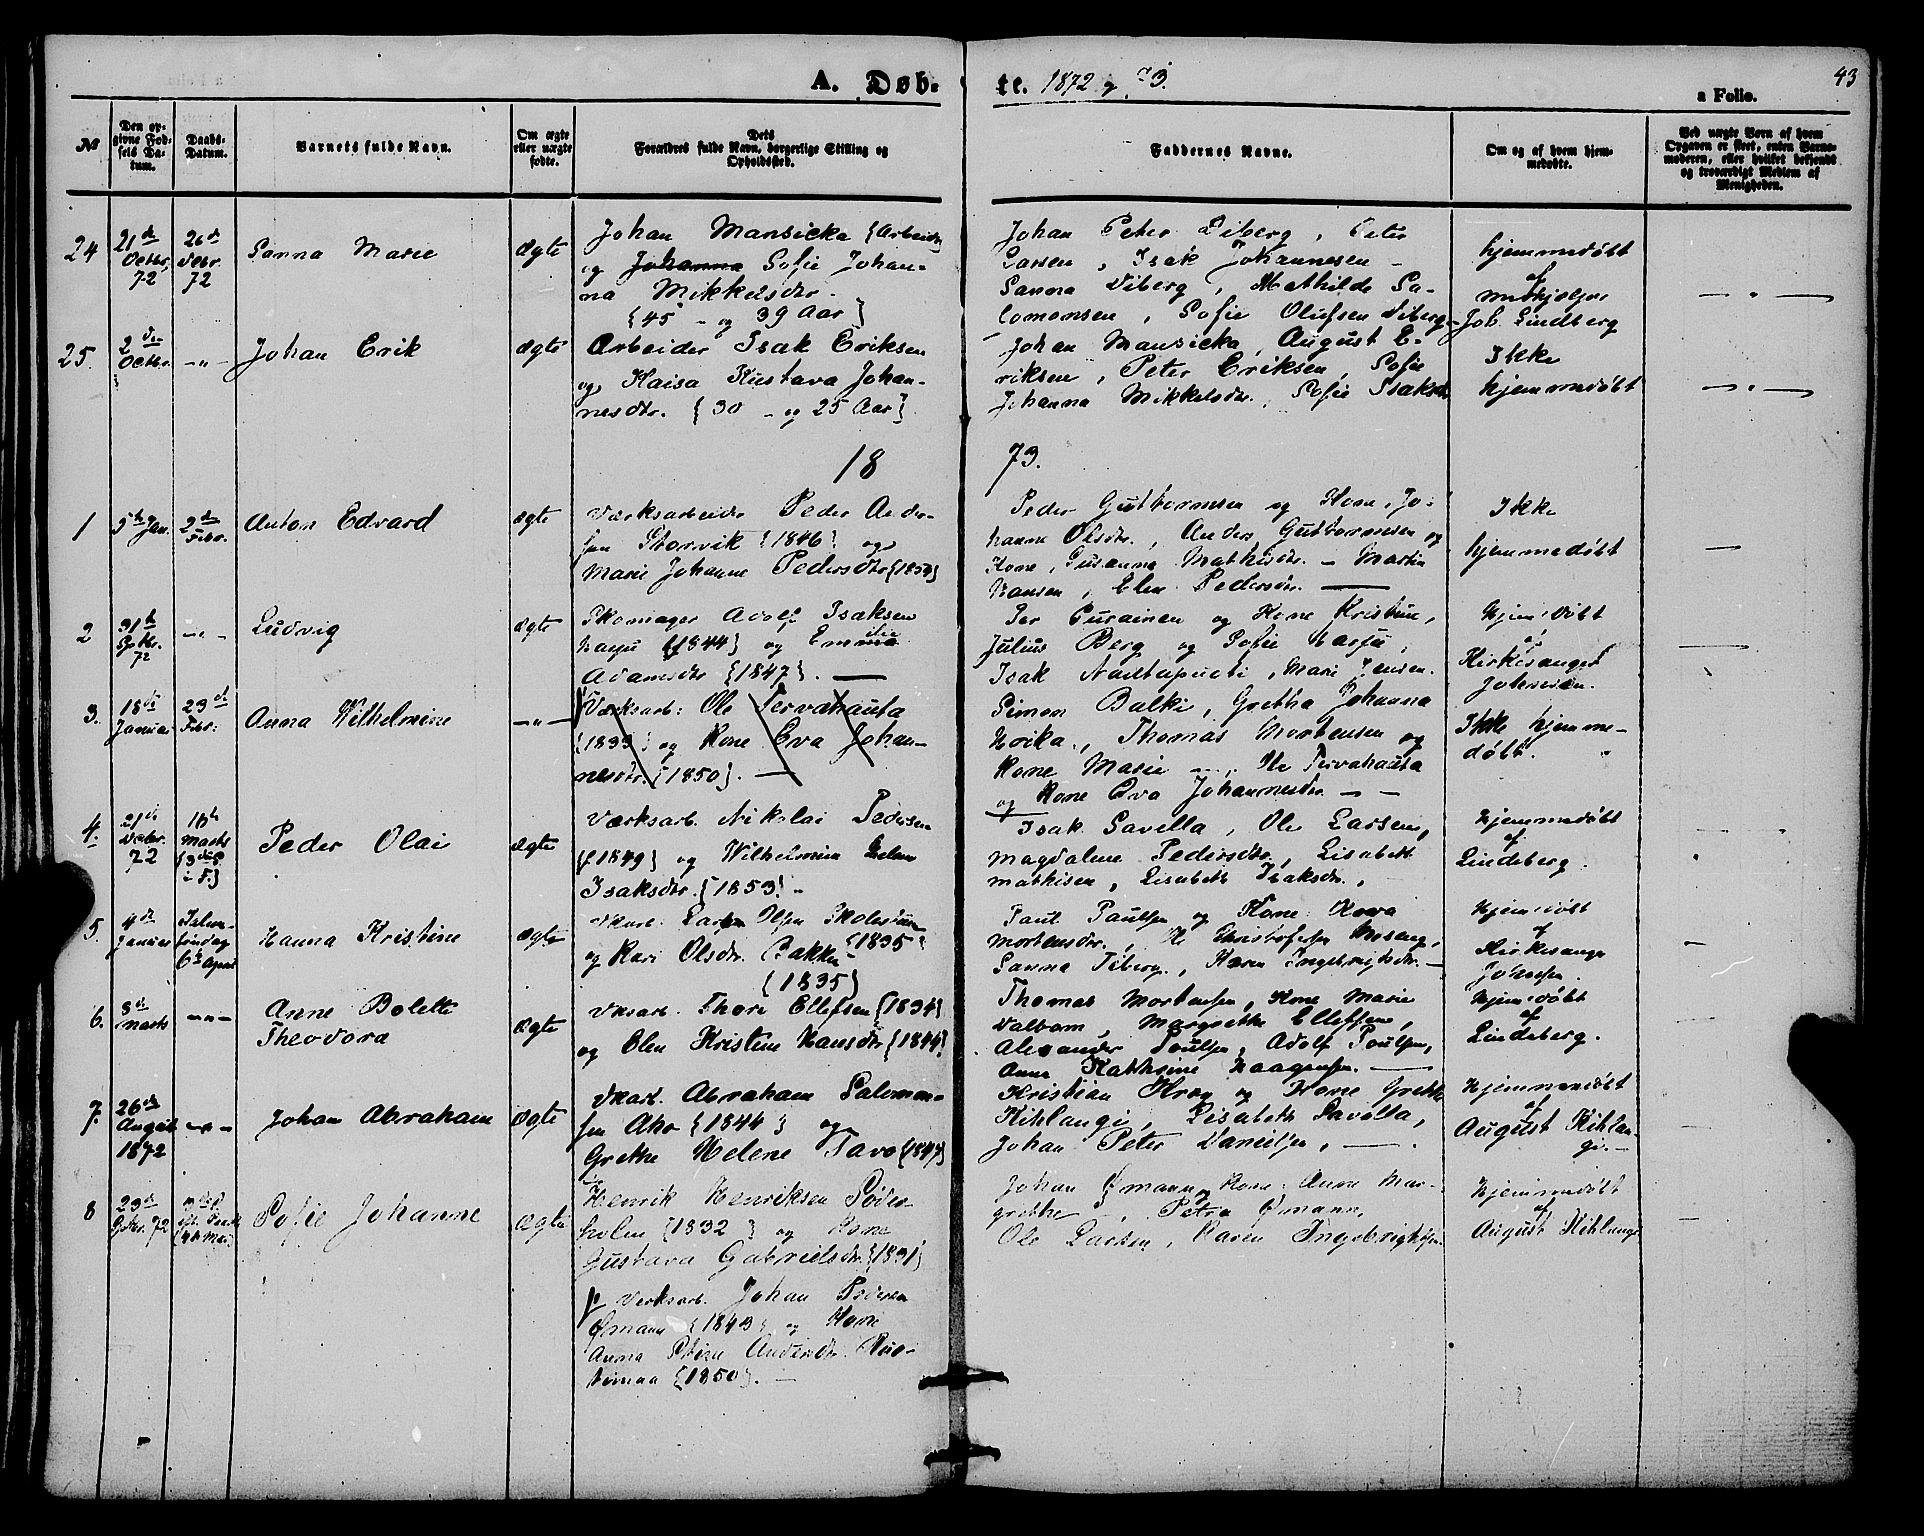 A. Døb-
te. 1872 og 73.
43
a Folio.
№
Den opgivne Fødsels Datum.
Daabs-Datum.
Barnets fulde Navn.
Om ægte eller uægte fødte.
Dets Forældres fulde Navn, borgerlige Stilling og Opholdssted.
Faddernes Navne.
Om og af hvem hjemmedøbte.
Ved uægte Børn af hvem Opgaven er skeet, enten Barnemoderen, eller hvilket bekjendt og troværdigt Medlem af Menigheden.
24
21de Octbr. 72
26de Debr. 72
Sanna Marie
Ægte
Johan Mansicka {Arbeider
og Johanna Sofie Johan-
na Mikkelsdtr.
{45 - og 39 Aar}
Johan Peter Viberg, Peter
Larsen, Isak Johannesen -
Sanna Viberg, Mathilde Sa-
lomonsen, Sofie Olufsen Viberg
hjemmedøbt
af
Joh. Lindberg
25.
2den Octbr.
-"-
Johan Erik
Ægte
Arbeider Isak Eriksen
og Kaisa Kustava Johan-
nesdtr. {30 - og 25 Aar}
Johan Mansicka, August E-
riksen, Peter Eriksen, Sofie
Johanna Mikkelsdtr., Sofie Isaksdr
Ikke
hjemmedøbt
1873.
1
5te Jan.
2den Febr.
Anton Edvard
Ægte
Værksarbeider Peder Ander-
sen Storvik {1846} og
Marie Johanne Pedersdtr {1850}
Peder Guttormsen og Kone, Jo-
hanne Olsdtr., Anders Guttormsen og
Kone, Susanna Mathisdtr. - Martin
Hansen, Elen Pedersdtr.
Ikke
hjemmedøbt
2
31te Octbr. 72
-"-
Ludvig
Ægte
Skomager Adolf Isaksen
Harju {1844} og Emma
Adamsdtr {1847}.
Per Curainen og Kone Kristine,
Julius Berg og Sofie Harju,
Isak Nautapuoti, Mari Jensen.
Hjemdøbt
af
Kirkesanger
Johnsen.
3.
18de Januar
23de Febr.
Anna Wilhelmine
-"-
Værksarb: Ole Tervahauta
{1833} og Kone Eva Johan-
nesdtr. {1850}.
Simon Balki, Gretha Johanna
Noika, Thomas Mortensen og
Kone Marie - , Ole Tervahauta
og Kone Eva Johannesdtr
Ikke hjemme-
døbt.
4.
21de Debr. 72
Marts
Peder Olai
Ægte
Værksarb. Nikolai Pedersen
{1849} og Wilhelmine Helene
Isaksdtr. {1853}
Isak Savella, Ole Larsen,
Magdalene Pedersdtr, Lisabeth
Mathisen, Lisabeth Isaksdr.
Hjemmedøbt
af
Lindeberg.
5.
4de Januar
6te April
Hanna Kristine
Ægte
Vkarb. Larsen Olsen
og Kari Olsdtr. Bakken {1835}
{1835}
Paul Paulsen og Kone
Mortensdtr., Ole Christofersen Moseng,
Sanna Viberg, Karen Ingebrigtsdtr.
Hjemdøbt
af
Kirkesanger
Johnsen.
6.
3de Marts
-"-
Anne Bolette
Theodora
Ægte
Vksarb. Thore Ellefsen {1834}
og Elen Kristine Hansdtr {1844}
Thomas Mortensen, Kone Marie
Valbom, Margrethe Ellefsen,
Alexander Poulsen, Adolf Poulsen,
Anne Kathrine Haagensen.
Hjemdøbt
af
Lindeberg.
7.
26de August 1872
-"-
Johan Abraham
Ægte
Vkarb. Abraham Salomon-
sen Aho {1844} og
Grethe Helene Tavo {1847}
Kristian Krog og Kone Grethe
Kihlangi, Lisabeth Savella,
Johan Peter Danielsen,
Hjemmedøbt
af
August Kihlan-
gi.
8
23de Octbr. 72
Sofie Johanne
Ægte
Henrik Henriksen Söder-
holm {1832} og Kone
Gustava Gabrielsdtr. {1831}
Johan Ømann og Kone Anna Mar-
grethe, Petra Ømann,
Ole Larsen, Karen Ingebrigtsen
Hjemmedøbt
af
August Kihlangi
Værksarb. Johan Pedersen
Ømann {1843} og Kone
Anna Andersdtr.
{1850}.